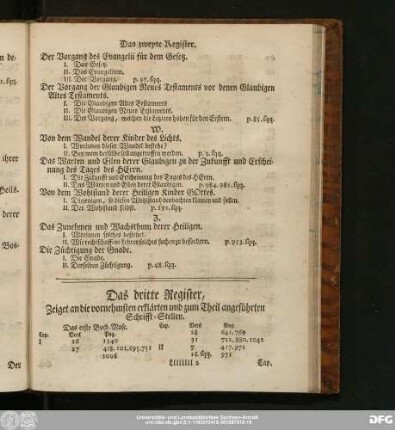 Das zweyte Register.
Der Vorgang des Evangelii für dem Gesetz.
I. Das Gesetz.
II. Das Evangelium.
III. Der Vorgang. p. 97. sqq.
Der Vorgang der Glaubigen Neues Testaments vor denen Glaubigen
Altes Testaments.
I. Die Glaubigen Altes Testaments
II. Die Glaubigen Neues Testaments.
III. Der Vorzug, welchen die Letzten haben für den Erstern. p. 85. sqq.
W.
Von dem Wandel derer Kinder des Lichts.
I. Worinnen dieser Wandel bestehe?
II. Bey wem derselbe soll angetroffen werden. p. 2. sqq.
Das Warten und Eilen derer Glaubigen zu der Zukunfft und Erschei-
nung des Tages des HErrn.
I. Die Zukunfft und Erscheinung des Tages des HErrn.
II. Das Warten und Eilen derer Glaubigen. p. 984. 981. sqq.
Von dem Wohlstand derer Heiligen Kinder GOttes.
I. Diejenigen, so diesen Wohlstand beobachten können und sollen.
II. Der Wohlstand selbst. p. 131. sqq.
Z.
Das Zunehmen und Wachsthum derer Heiligen.
I. Worinnen solches bestehet.
II. Wir rechtschaffene Lehrer solches suchen zu befördern. p. 953. sqq.
Die Züchtigung der Gnade.
I. Die Gnade.
II. Derselben Züchtigung. p. 48. sqq.
Das dritte Register,
Zeiget an die vornehmsten erklärten und zum Theil angeführten
Schrifft-Stellen.
Das erste Buch Mose.
Cap. Vers Pag.
I 26 1340
27 418. 101. 695. 751
1006
Cap. Vers Pag.
28 641. 769
31 722. 880. 1042
II 7 417. 971
16. sqq. 971
Lllllll 2 Cap.
ihrer
Heils-
derer
Der